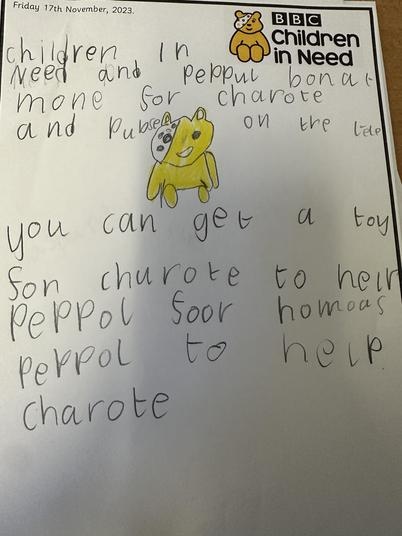 Friday 17th November, 2023.
BBC
Children
in Need
children In
Need and peppul bonat
mone for charote
and Pubse on the
you can get a toy
fon churote to help
peppol foor homoas
peppol to help
charote